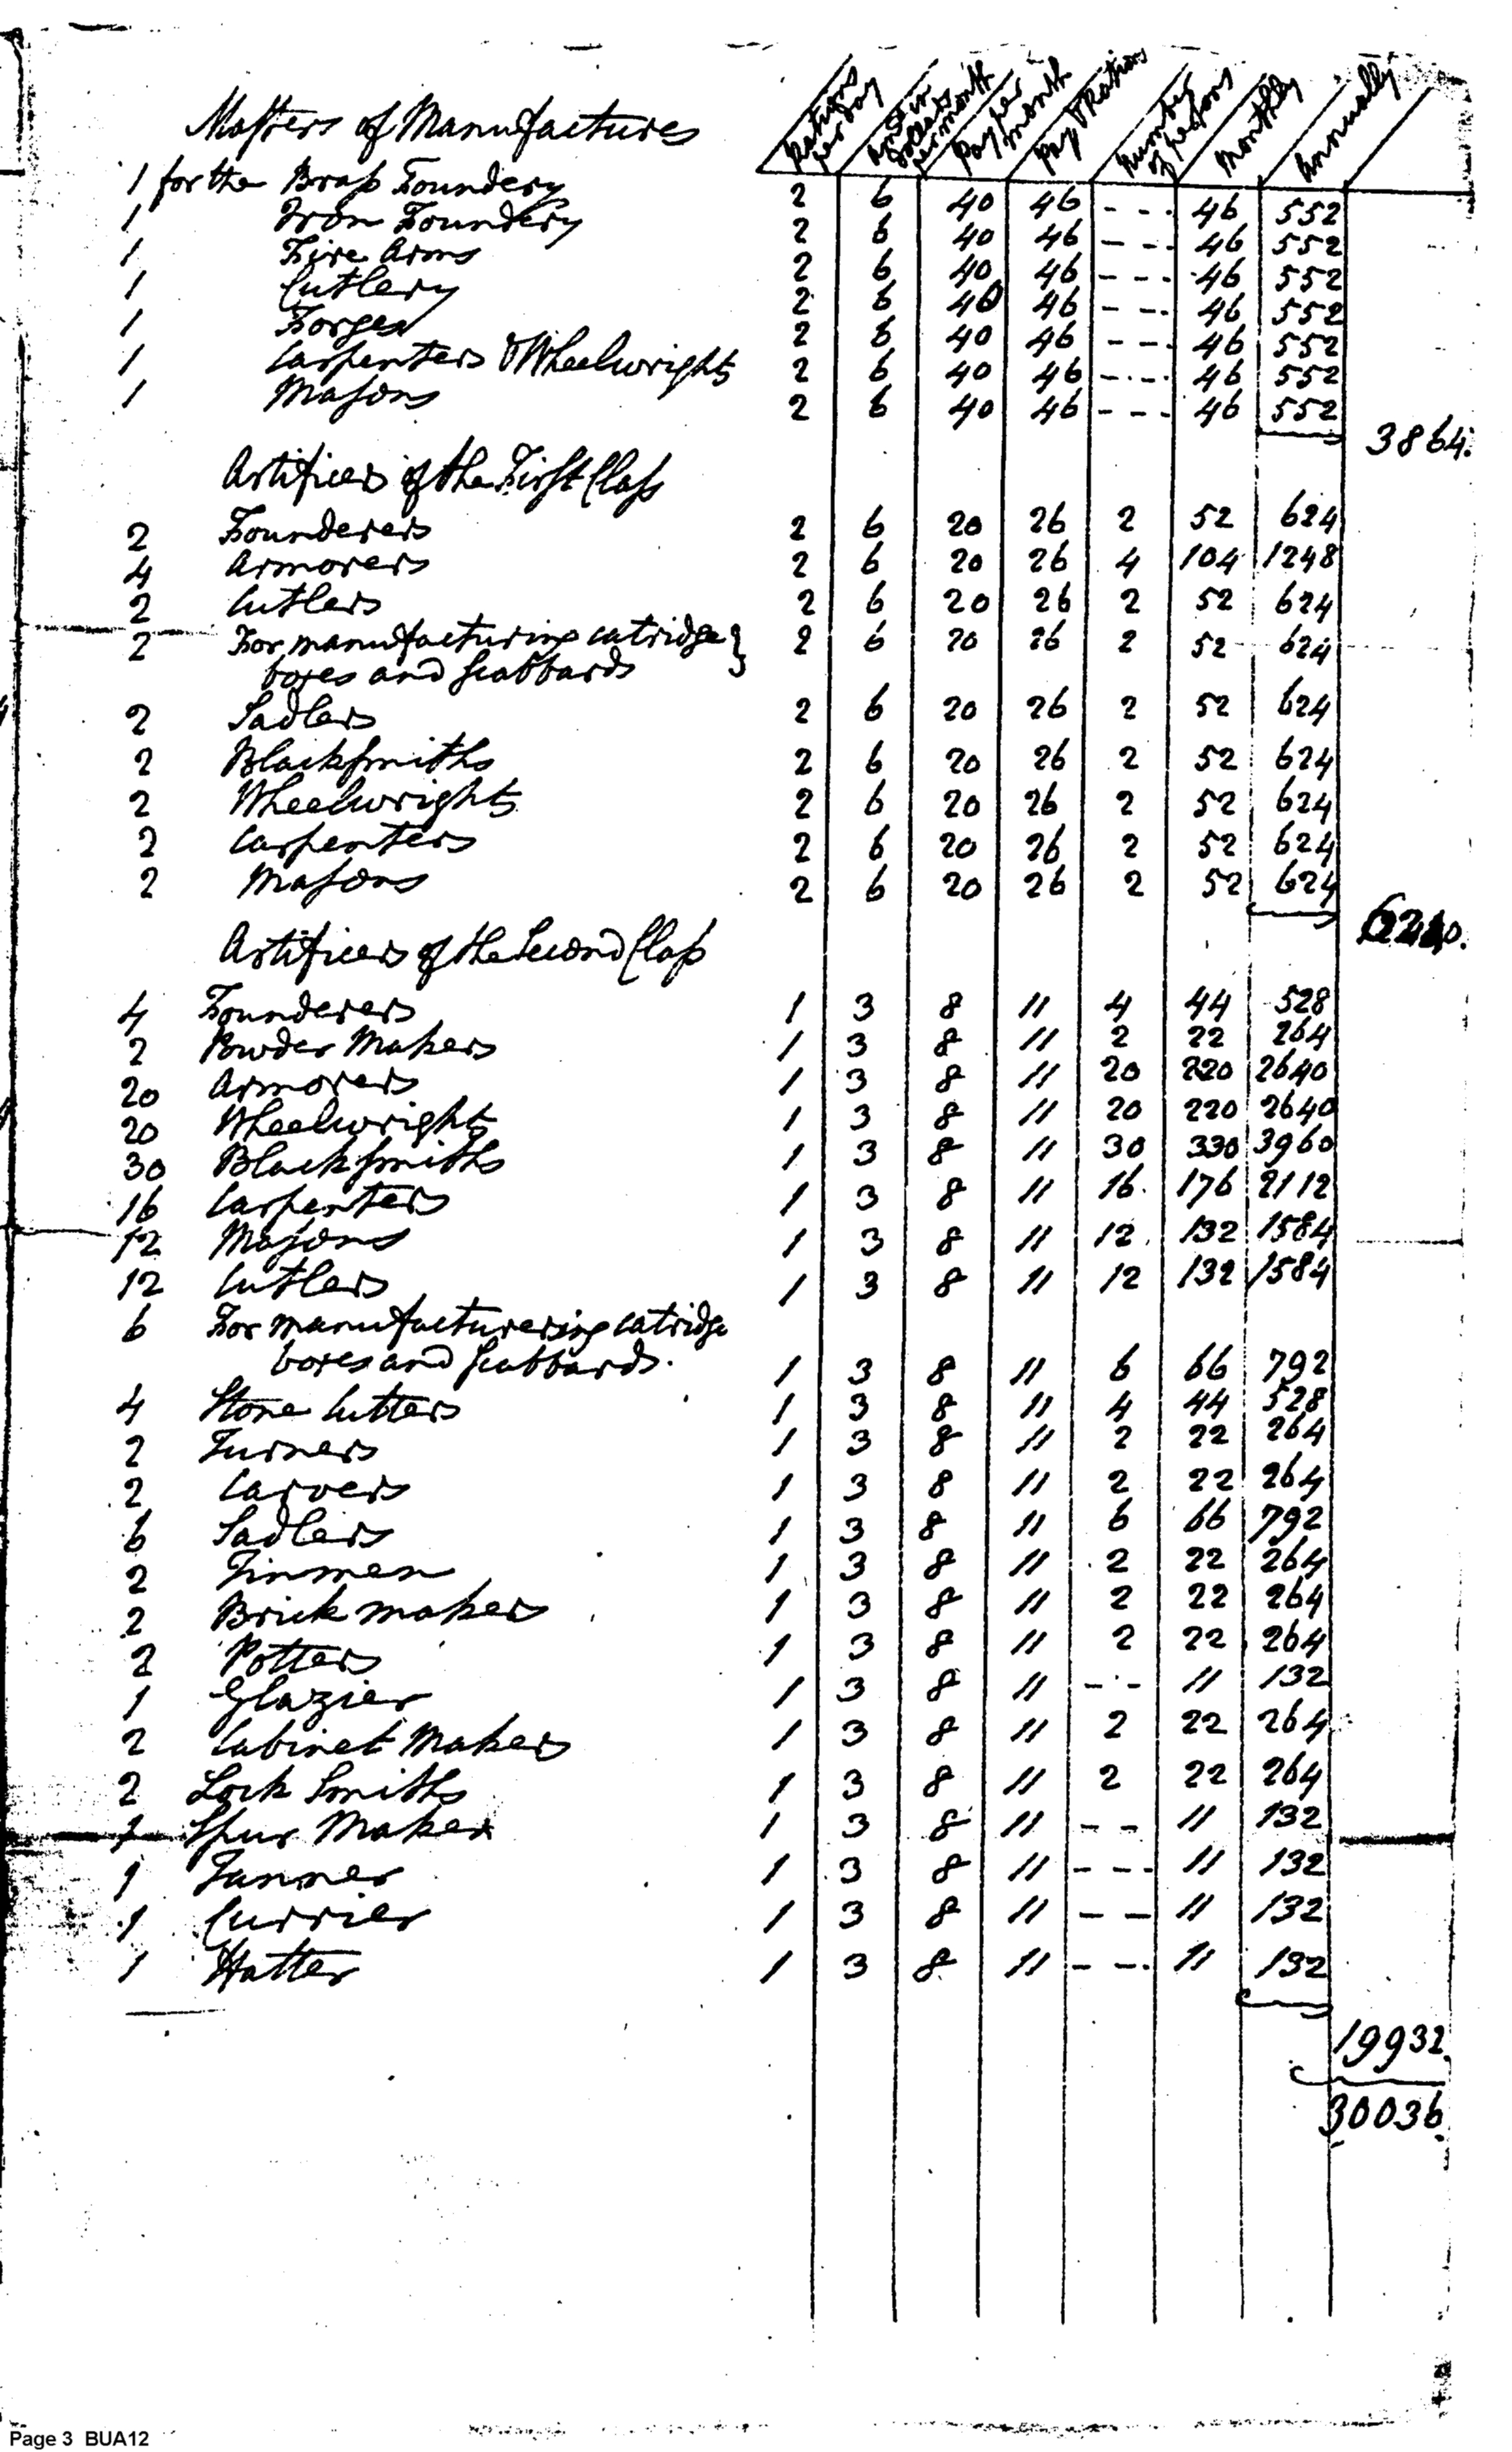 Rations per day | Do in Dollars per month | Pay per month | Pay & Rations | Number of persons | Monthly | Annually
Masters of Manufactures
1 for the Brass Foundery 2 6 40 46 - - - 46 552
1 Iron Foundery 2 6 40 46 - - - 46 552
1 Fire Arms 2 6 40 46 - - - 46 552
1 Cutlery 2 6 40 46 - - - 46 552
1 Forges 2 6 40 46 - - - 46 552
1 Carpenters & Wheelwrights 2 6 40 46 - - - 46 552
1 Masons 2 6 40 46 - - - 46 552
3864.
Artificers of the First Class
2 Founderers 2 6 20 26 2 52 624
4 Armorers 2 6 20 26 4 104 1248
2 Cutlers 2 6 20 26 2 52 624
2 For manufacturing catridge } 2 6 20 26 2 52 624
boxes and scabbards
2 Sadlers 2 6 20 26 2 52 624
2 Blacksmiths 2 6 20 26 2 52 624
2 Wheelwrights 2 6 20 26 2 52 624
2 Carpenters 2 6 20 26 2 52 624
2 Masons 2 6 20 26 2 52 624
6240.
Artificers of the Second Class
4 Founderers 1 3 8 11 4 44 528
2 Powder Makers 1 3 8 11 2 22 264
20 Armorers 1 3 8 11 20 220 2640
20 Wheelwrights 1 3 8 11 20 220 2640
30 Blacksmiths 1 3 8 11 30 330 3960
16 Carpenters 1 3 8 11 16 176 2112
12 Masons 1 3 8 11 12 132 1584
12 Cutlers 1 3 8 11 12 132 1584
6 For manufacturering catridge
boxes and scabbards. 1 3 8 11 6 66 792
4 Stone Cutters 1 3 8 11 4 44 528
2 Turners 1 3 8 11 2 22 264
2 Carvers 1 3 8 11 2 22 264
6 Sadlers 1 3 8 11 6 66 792
2 Tinmen 1 3 8 11 2 22 264
2 Brick makers 1 3 8 11 2 22 264
2 Potters 1 3 8 11 2 22 264
1 Glazier 1 3 8 11 - - - 11 132
2 Cabinet Makers 1 3 8 11 2 22 264
2 Lock Smiths 1 3 8 11 2 22 264
1 Spur Maker 1 3 8 11 - - 11 132
1 Tanner 1 3 8 11 - - - 11 132
1 Currier 1 3 8 11 - - 11 132
1 Hatter 1 3 8 11 - - - 11 132
19932.
30036
Page 3 BUA12